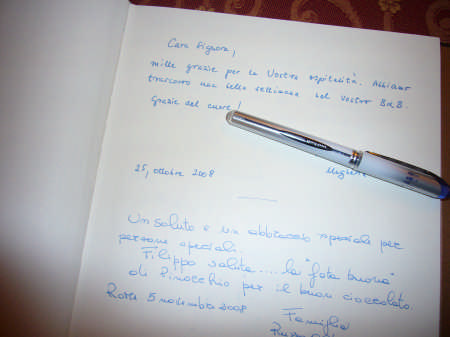 Cara Signora,
mille grazie per la Vostra ospitalità. Abbiamo
trascorso una bella settimana nel vostro B&B.
Grazie dal cuore!
25, ottobre 2008
Un saluto e un abbraccio speciale per
persone speciali.
Filippo saluta .... la "fata buona"
di Pinocchio per il buon cioccolato.
Roma 5 novembre 2008
Famiglia